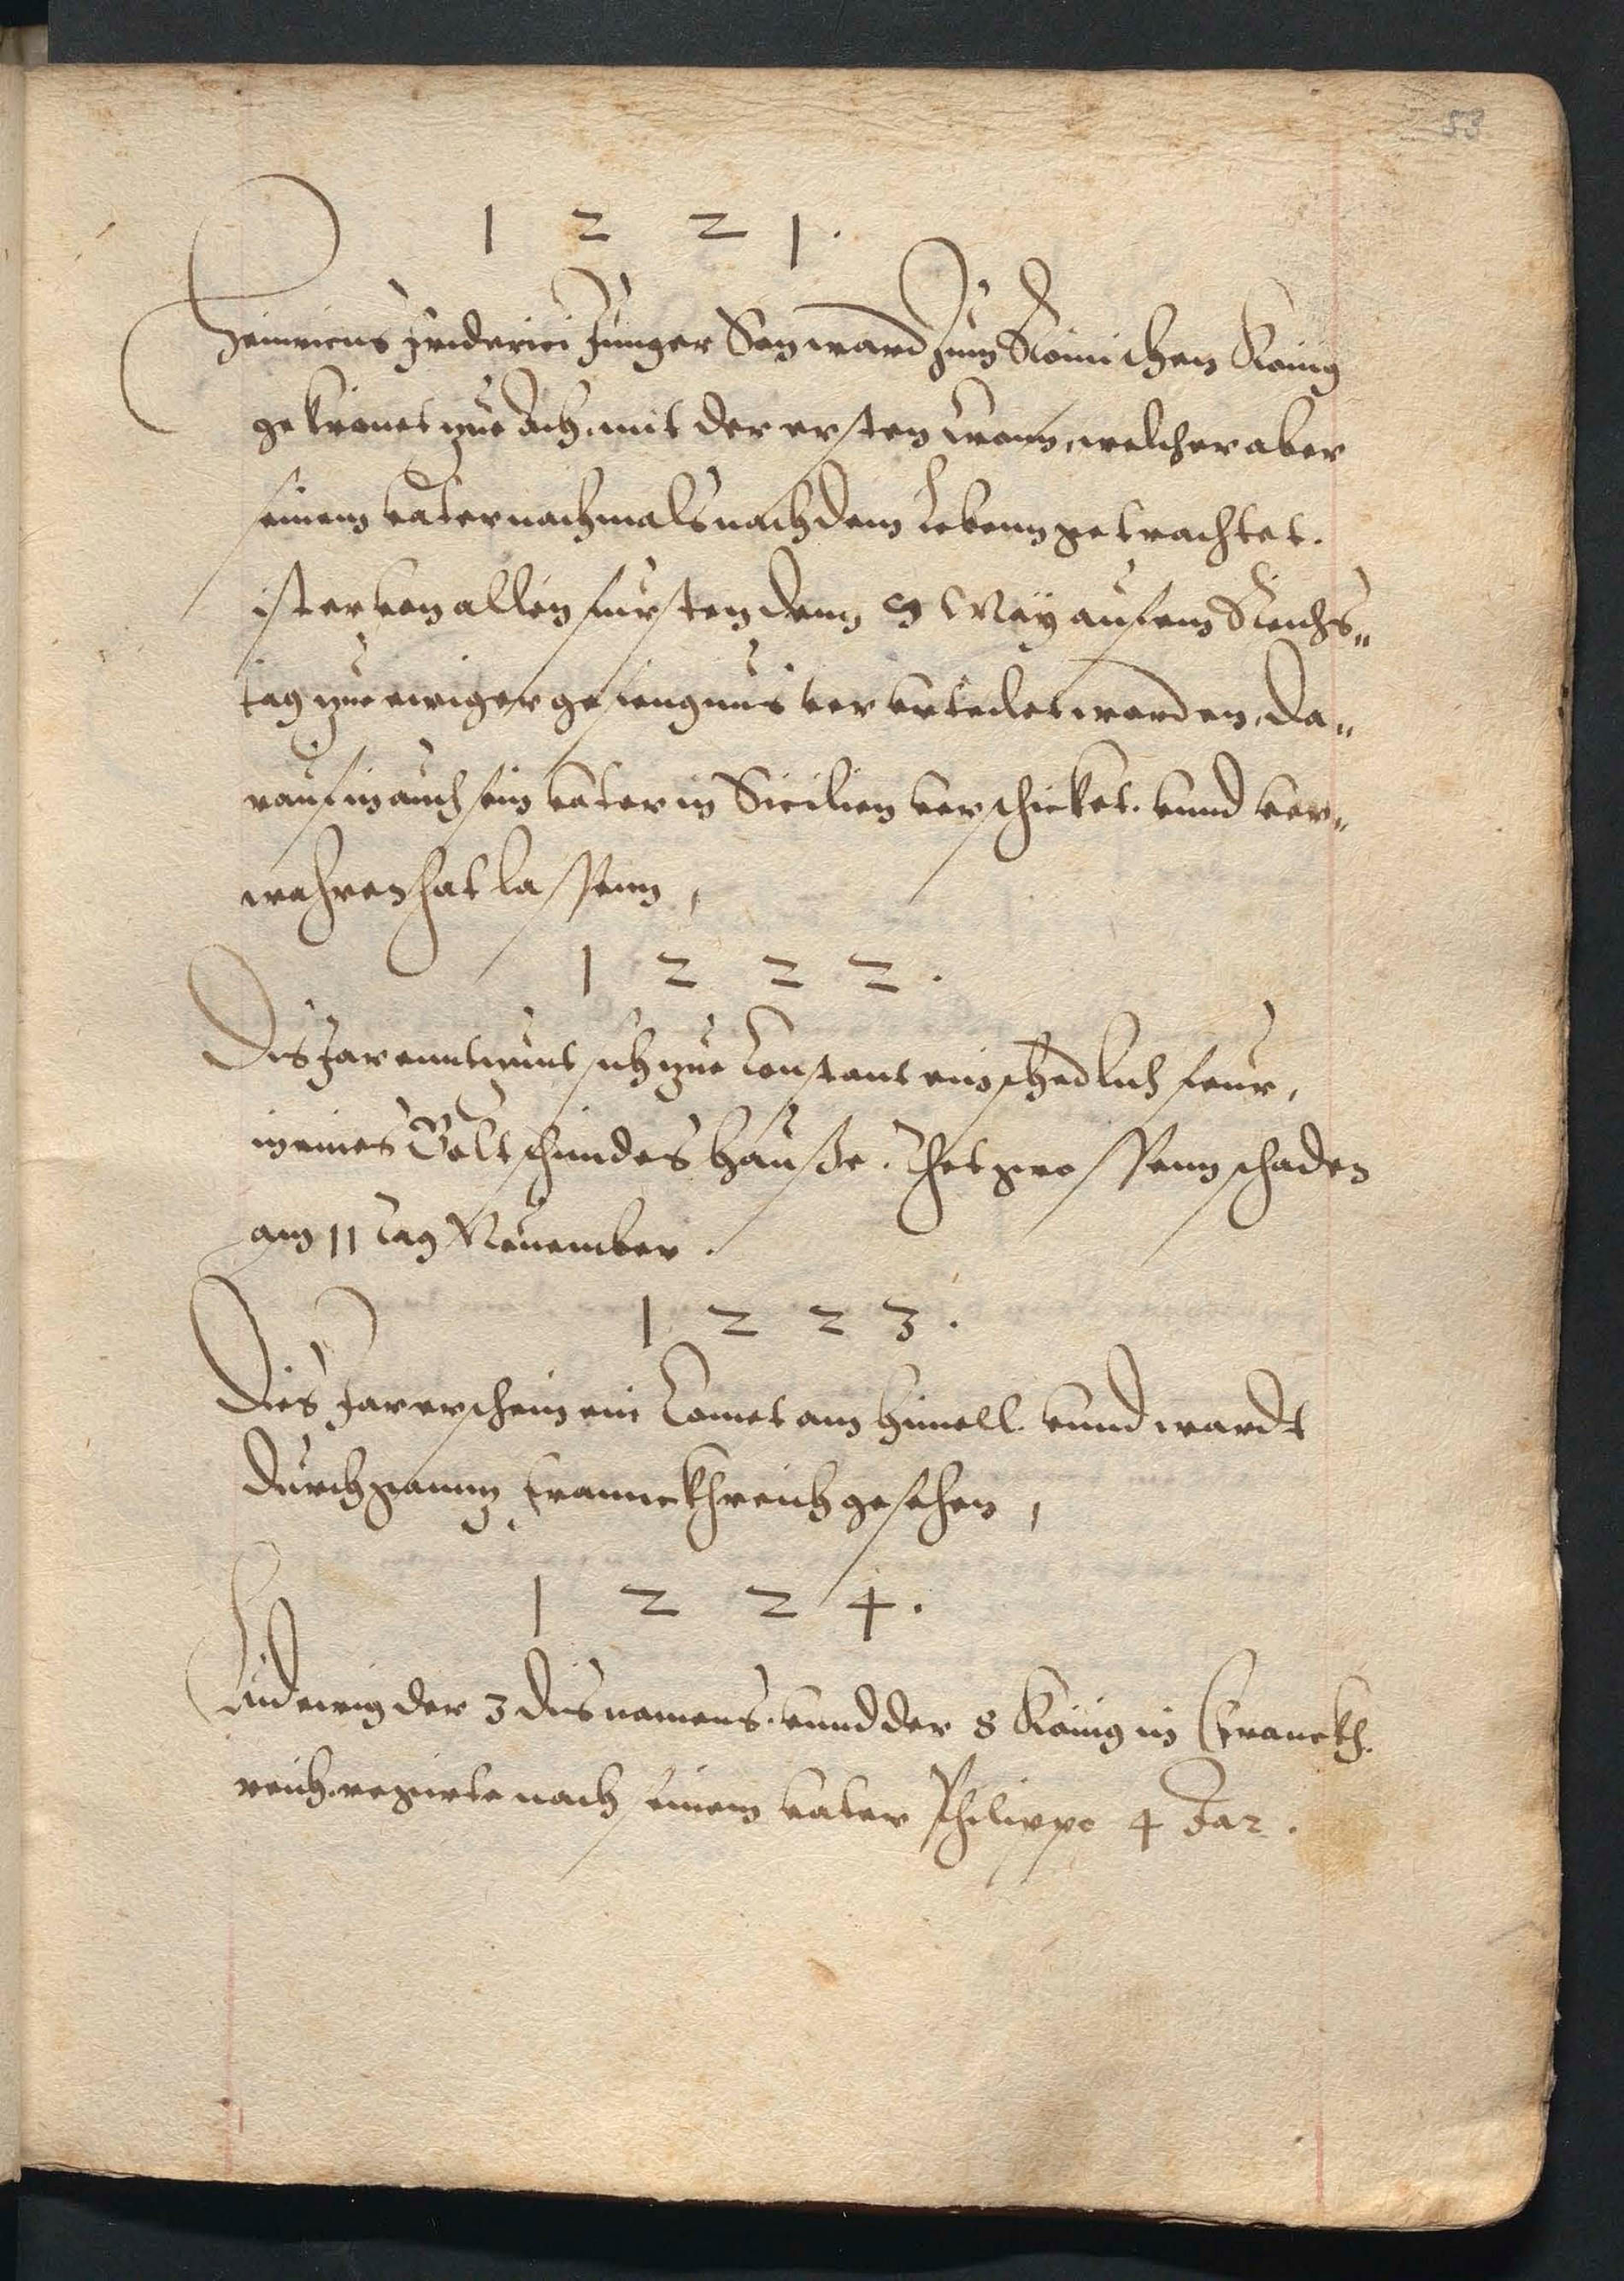 53
1 2 2 1.
Heinricus Friderici Junger Son ward zum Römischen König
gekrönet zue Ach. mit der ersten Cron, welcher aber
seinem vater nachmals nach dem Lebenn getrachtet.
ist er von allen fursten denn 9 May auf em Reichs„
tag zue ewiger gefengnus ververteilet worden, da„
rauf in auch sein vater in Sicilien verschicket. vnnd ver„
wahren hat lassenn,
1 2 2 2.
Dis Jar enntzünt sich zue Constant ein schedlich feur,
in eines Goltschmides Hauße. thet grossenn schaden
am 11 tag Nouember.
1 2 2 3.
Dis Jar erschein ein Comet am Himell. vnnd wardt
durch gannz Franckhreich gesehen,
1 2 2 4.
Ludewig der 3 dis namens. vnnd der 8 König in Franckh.
reich. regierte nach seinem vater Philippo 4 Jar.